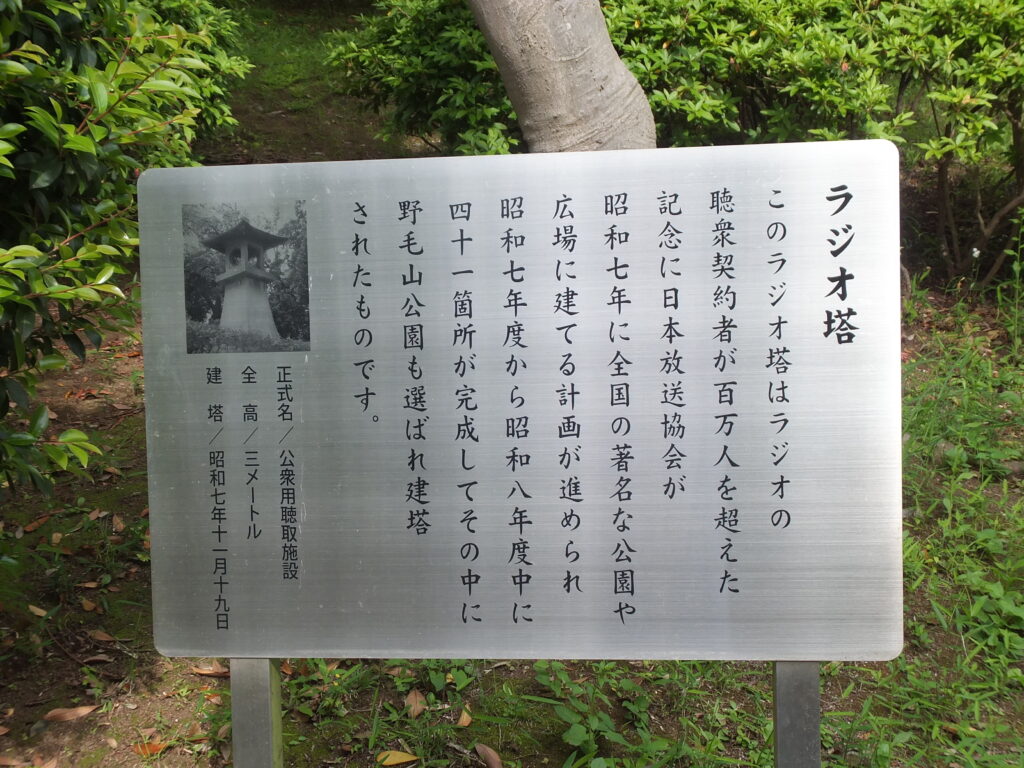 ラジオ塔
このラジオ塔はラジオの
聴衆契約者が百万人を超えた
記念に日本放送協会が
昭和七年に全国の著名な公園や
広場に建てる計画が進められ
昭和七年度から昭和八年度中に
四十一箇所が完成してその中に
野毛山公園も選ばれ建塔
されたものです。
正式名／公衆用聴取施設
全　高／三メートル
建　塔／昭和七年十一月十九日